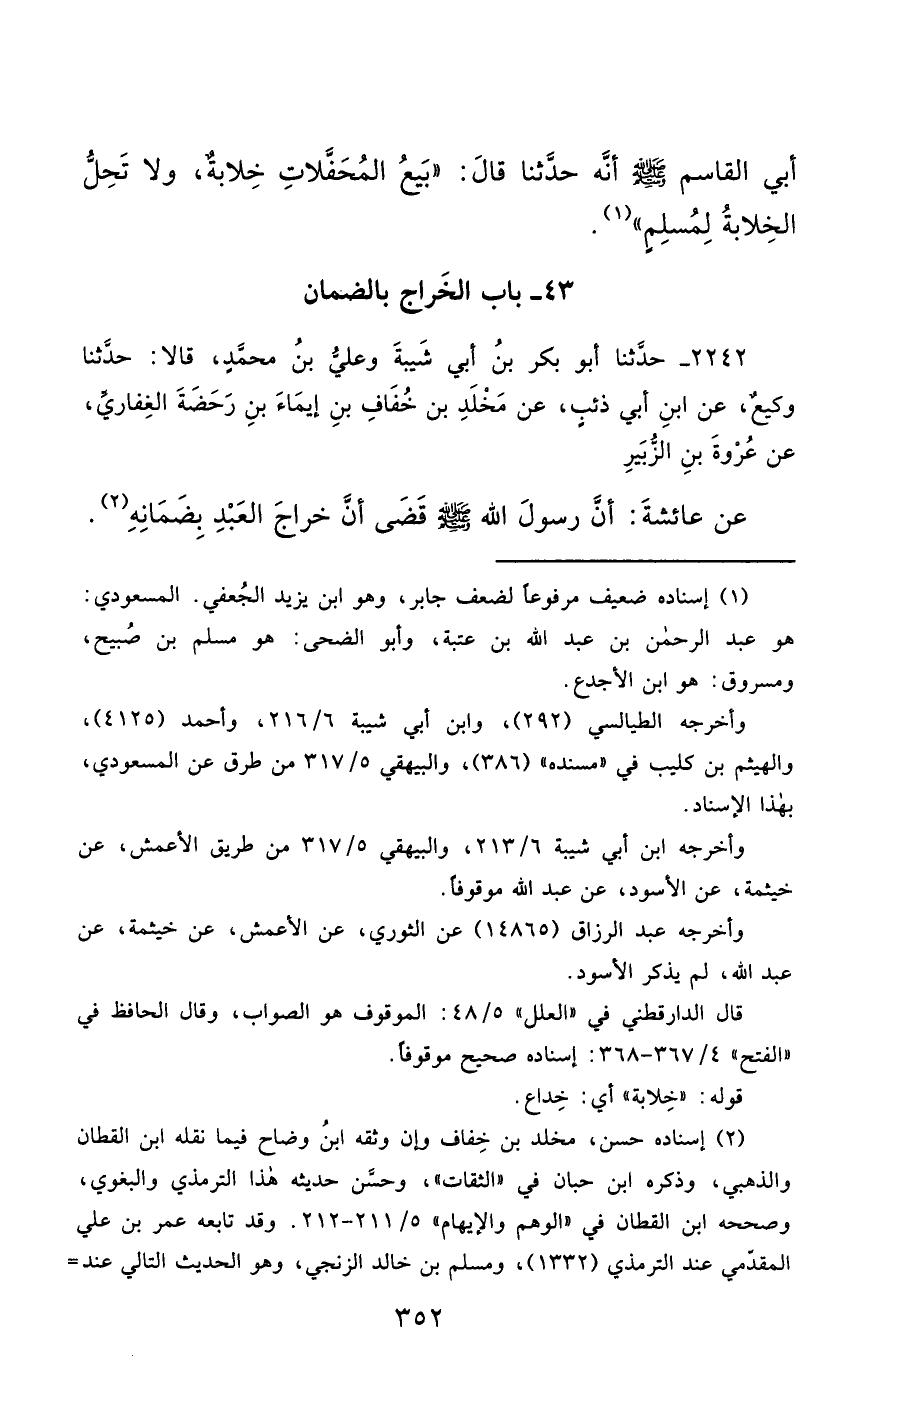 أبي القاسم ﷺ أنَّه حدَّثنا قالَ: «بَيعُ المُحَفَّلاتِ خِلابةٌ، ولا تَحِلُّ
الخِلابةُ لِمُسلِمٍ»(١).
٤٣ـ باب الخَراج بالضمان
٢٢٤٢ـ حدَّثنا أبو بكر بنُ أبي شَيبةَ وعليُّ بنُ محمَّدٍ، قالا: حدَّثنا
وكيعٌ، عن ابنِ أبي ذئبٍ، عن مَخْلَدِ بن خُفَافِ بنِ إيمَاءَ بنِ رَحَضَةَ الغِفاريِّ،
عن عُرْوةَ بنِ الزُّبَيرِ
عن عائشةَ: أنَّ رسولَ الله ﷺ قَضَى أنَّ خراجَ العَبْدِ بِضَمَانِهِ(٢).
(١) إسناده ضعيف مرفوعاً لضعف جابر، وهو ابن يزيد الجُعفي. المسعودي:
هو عبد الرحمٰن بن عبد الله بن عتبة، وأبو الضحى: هو مسلم بن صُبيح،
ومسروق: هو ابن الأجدع.
وأخرجه الطيالسي (٢٩٢)، وابن أبي شيبة ٢١٦/٦، وأحمد (٤١٢٥)،
والهيثم بن كليب في «مسنده» (٣٨٦)، والبيهقي ٣١٧/٥ من طرق عن المسعودي،
بهٰذا الإسناد.
وأخرجه ابن أبي شيبة ٢١٣/٦، والبيهقي ٣١٧/٥ من طريق الأعمش، عن
خيثمة، عن الأسود، عن عبد الله موقوفاً.
وأخرجه عبد الرزاق (١٤٨٦٥) عن الثوري، عن الأعمش، عن خيثمة، عن
عبد الله، لم يذكر الأسود.
قال الدارقطني في «العلل» ٤٨/٥: الموقوف هو الصواب، وقال الحافظ في
«الفتح» ٤/ ٣٦٧-٣٦٨: إسناده صحيح موقوفاً.
قوله: «خِلابة» أي: خِداع.
(٢) إسناده حسن، مخلد بن خِفاف وإن وثقه ابنُ وضاح فيما نقله ابن القطان
والذهبي، وذكره ابن حبان في «الثقات»، وحسَّن حديثه هٰذا الترمذي والبغوي،
وصححه ابن القطان في «الوهم والإيهام» ٥/ ٢١١-٢١٢. وقد تابعه عمر بن علي
المقدّمي عند الترمذي (١٣٣٢)، ومسلم بن خالد الزنجي، وهو الحديث التالي عند=
٣٥٢